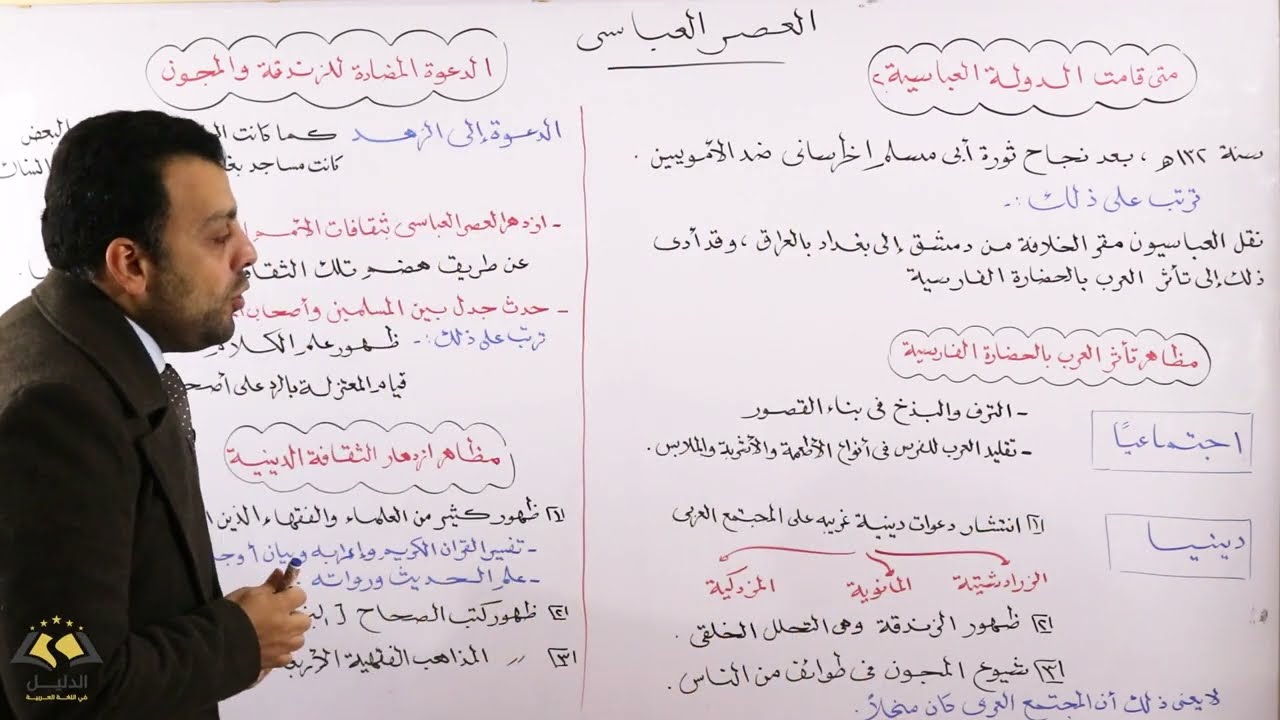 العصر العباسى
متى قامت الدولة العباسية؟
سنة ١٣٢هـ ، بعد نجاح ثورة أبى مسلم الخراسانى ضد الأمويين .
ترتب على ذلك :-
نقل العباسيون مقر الخلافة من دمشق إلى بغداد بالعراق ، وقد أدى
ذلك إلى تأثر العرب بالحضارة الفارسية
مظاهر تأثر العرب بالحضارة الفارسية
اجتماعيًا
- الترف والبذخ فى بناء القصور
- تقليد العرب للفرس فى أنواع الأطعمة والأشربة والملابس .
دينيا
١ انتشار دعوات دينية غريبه على المجتمع العربى
الزرادشتية المانوية المزدكية
٢ ظهور الزندقة وهى التحلل الخلقى .
٣ شيوع المجون فى طوائف من الناس .
لا يعنى ذلك أن المجتمع العربى كان منحلاً .
الدعوة المضادة للزندقة والمجون
الدعوة إلى الزهد كما كانت البعض
كانت مساجد
- ازدهر العصر العباسى بثقافات الأمم
عن طريق هضم تلك
- حدث جدل بين المسلمين وأصحاب
ترتب على ذلك :- ظهور علم الكلام
قيام المعتزلة بالرد على
مظاهر ازدهار الثقافة الدينية
١ ظهور كثير من العلماء والفقهاء الذين
- تفسير القرآن الكريم وإعرابه وبيان
- علم الحديث ورواته
٢ ظهور كتب الصحاح
٣ " المذاهب الفقهية
الدليل
في اللغة العربية